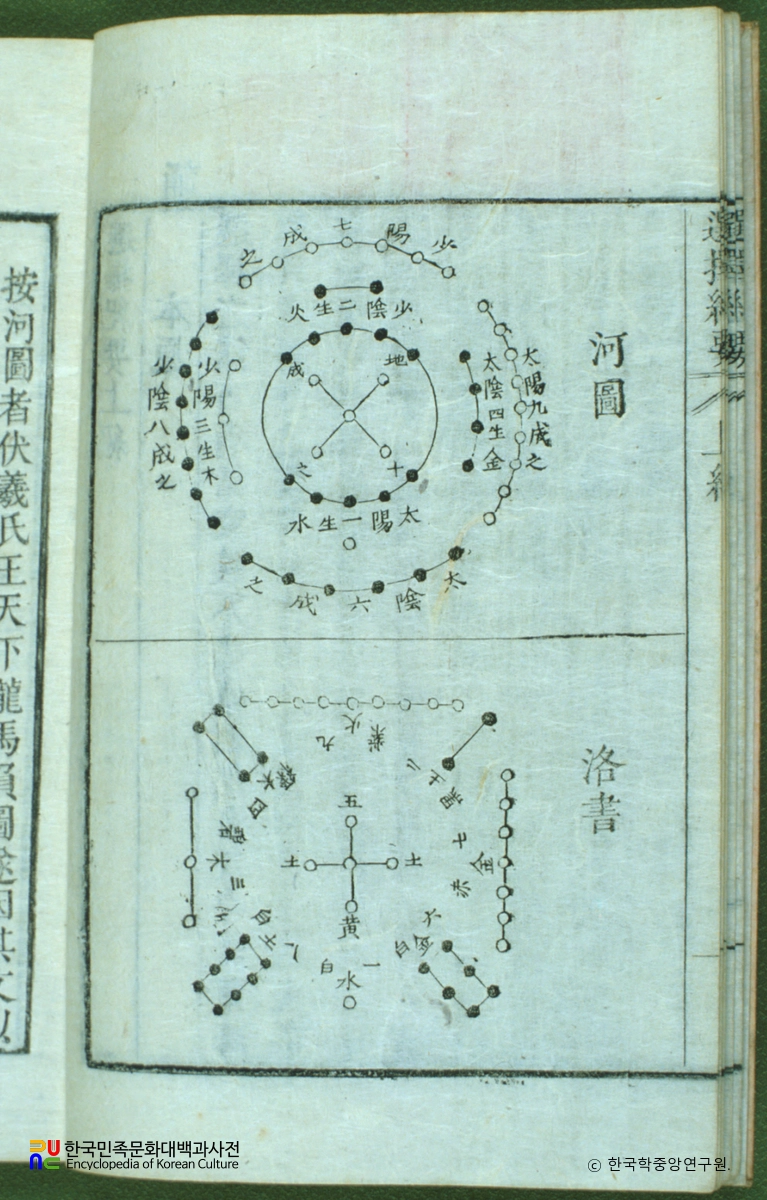 選擇紀要
上
河圖
少陽七成之
少陰二生火
地
成
十
之
太陽一生水
太陰六成之
太陽九成之
太陰四生金
少陽三生木
少陰八成之
洛書
九
火
紫
二
土
黑
七
金
赤
六
金
白
一
水
白
八
土
白
三
木
碧
四
木
綠
五
土
土
黃
按河圖者伏羲氏王天下龍馬負圖遂因其文以
한국민족문화대백과사전
Encyclopedia of Korean Culture
© 한국학중앙연구원.